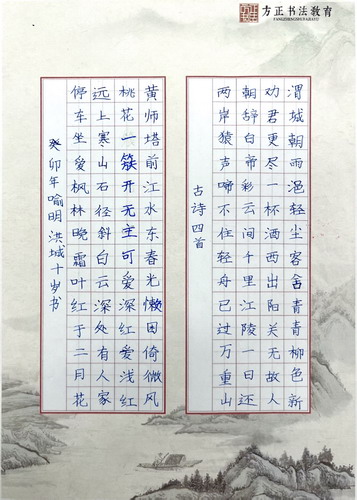 方正书法教育
FANGZHENGSHUFAJIAOYU
渭城朝雨浥轻尘客舍青青柳色新
劝君更尽一杯酒西出阳关无故人
朝辞白帝彩云间千里江陵一日还
两岸猿声啼不住轻舟已过万重山
古诗四首
黄师塔前江水东春光懒困倚微风
桃花一簇开无主可爱深红爱浅红
远上寒山石径斜白云深处有人家
停车坐爱枫林晚霜叶红于二月花
癸卯年喻明洪城十岁书